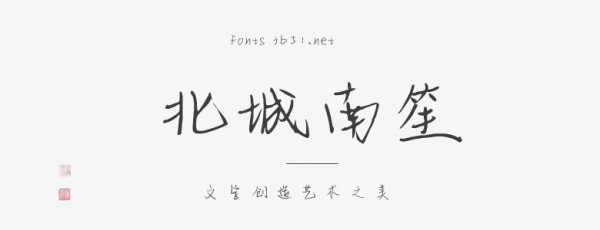 Fonts jb51.net
北城南笙
文字创造艺术之美